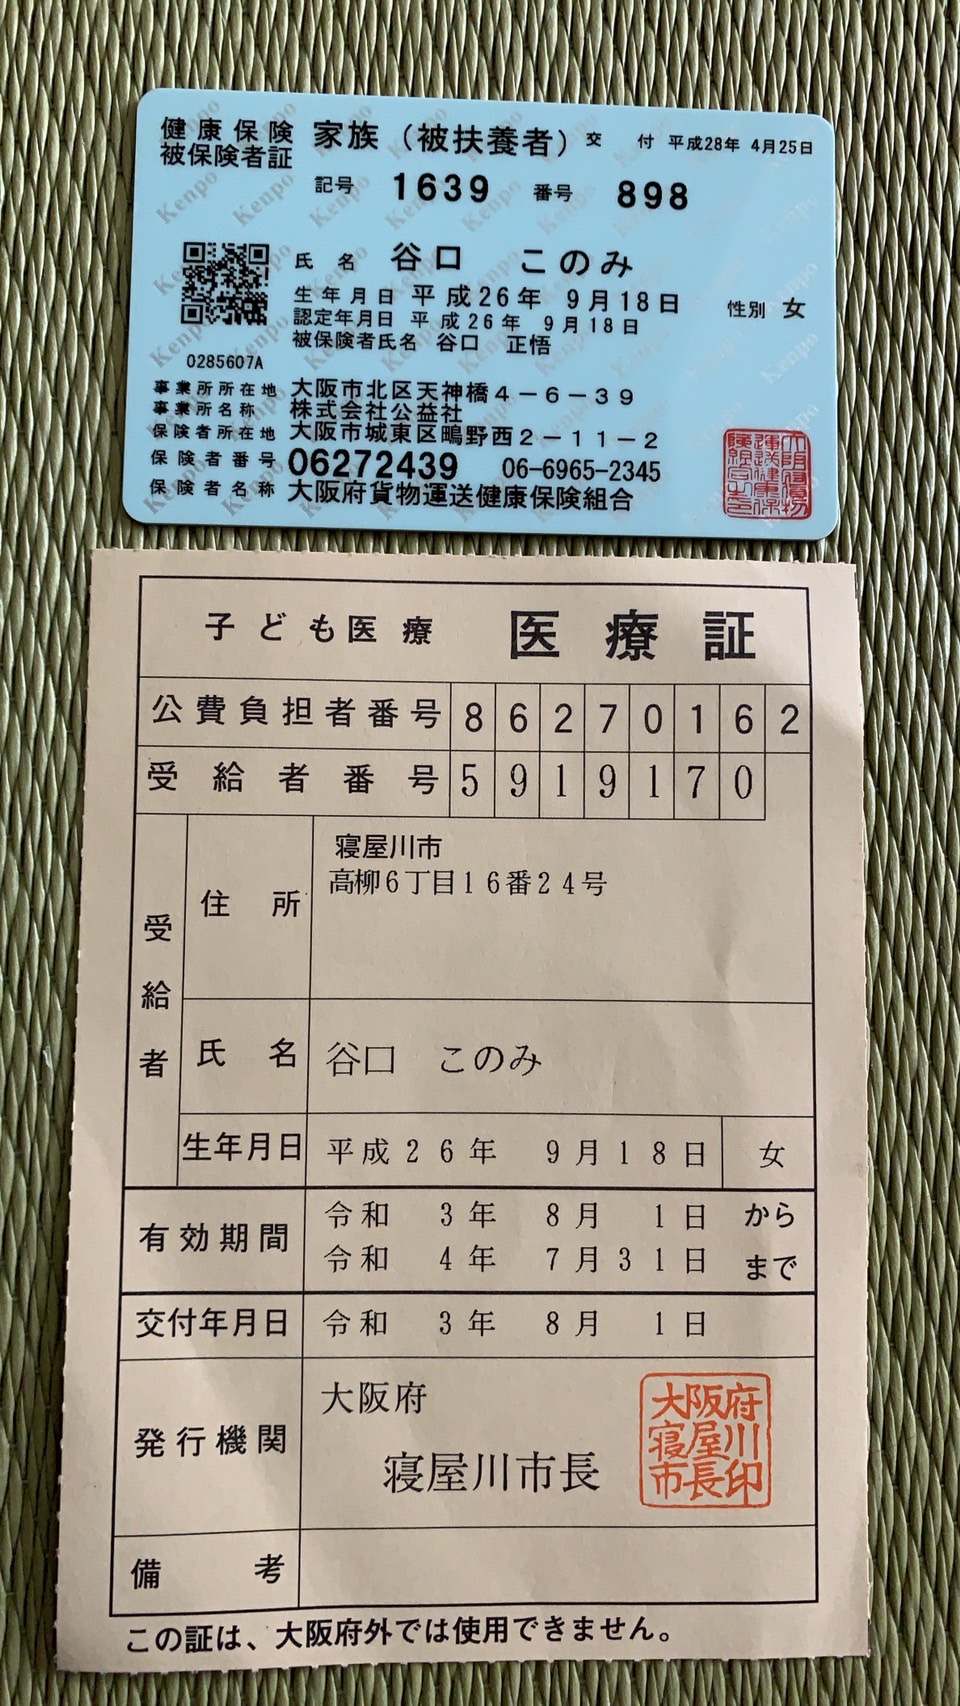 健康保険 家族（被扶養者）交 付 平成28年 4月25日
被保険者証
記号 1639 番号 898
氏名 谷口 このみ
生年月日 平成26年 9月18日 性別 女
認定年月日 平成26年 9月18日
被保険者氏名 谷口 正悟
0285607A
事業所所在地 大阪市北区天神橋4-6-39
事業所名称 株式会社公益社
保険者所在地 大阪市城東区鴫野西2-11-2
保険者番号 06272439 06-6965-2345
保険者名称 大阪府貨物運送健康保険組合
子ども医療 医療証
公費負担者番号 86270162
受給者番号 5919170
受給者
住所 寝屋川市
高柳6丁目16番24号
氏名 谷口 このみ
生年月日 平成26年 9月18日 女
有効期間 令和 3年 8月 1日 から
令和 4年 7月31日 まで
交付年月日 令和 3年 8月 1日
発行機関 大阪府
寝屋川市長
大阪府
寝屋川
市長印
備考
この証は、大阪府外では使用できません。